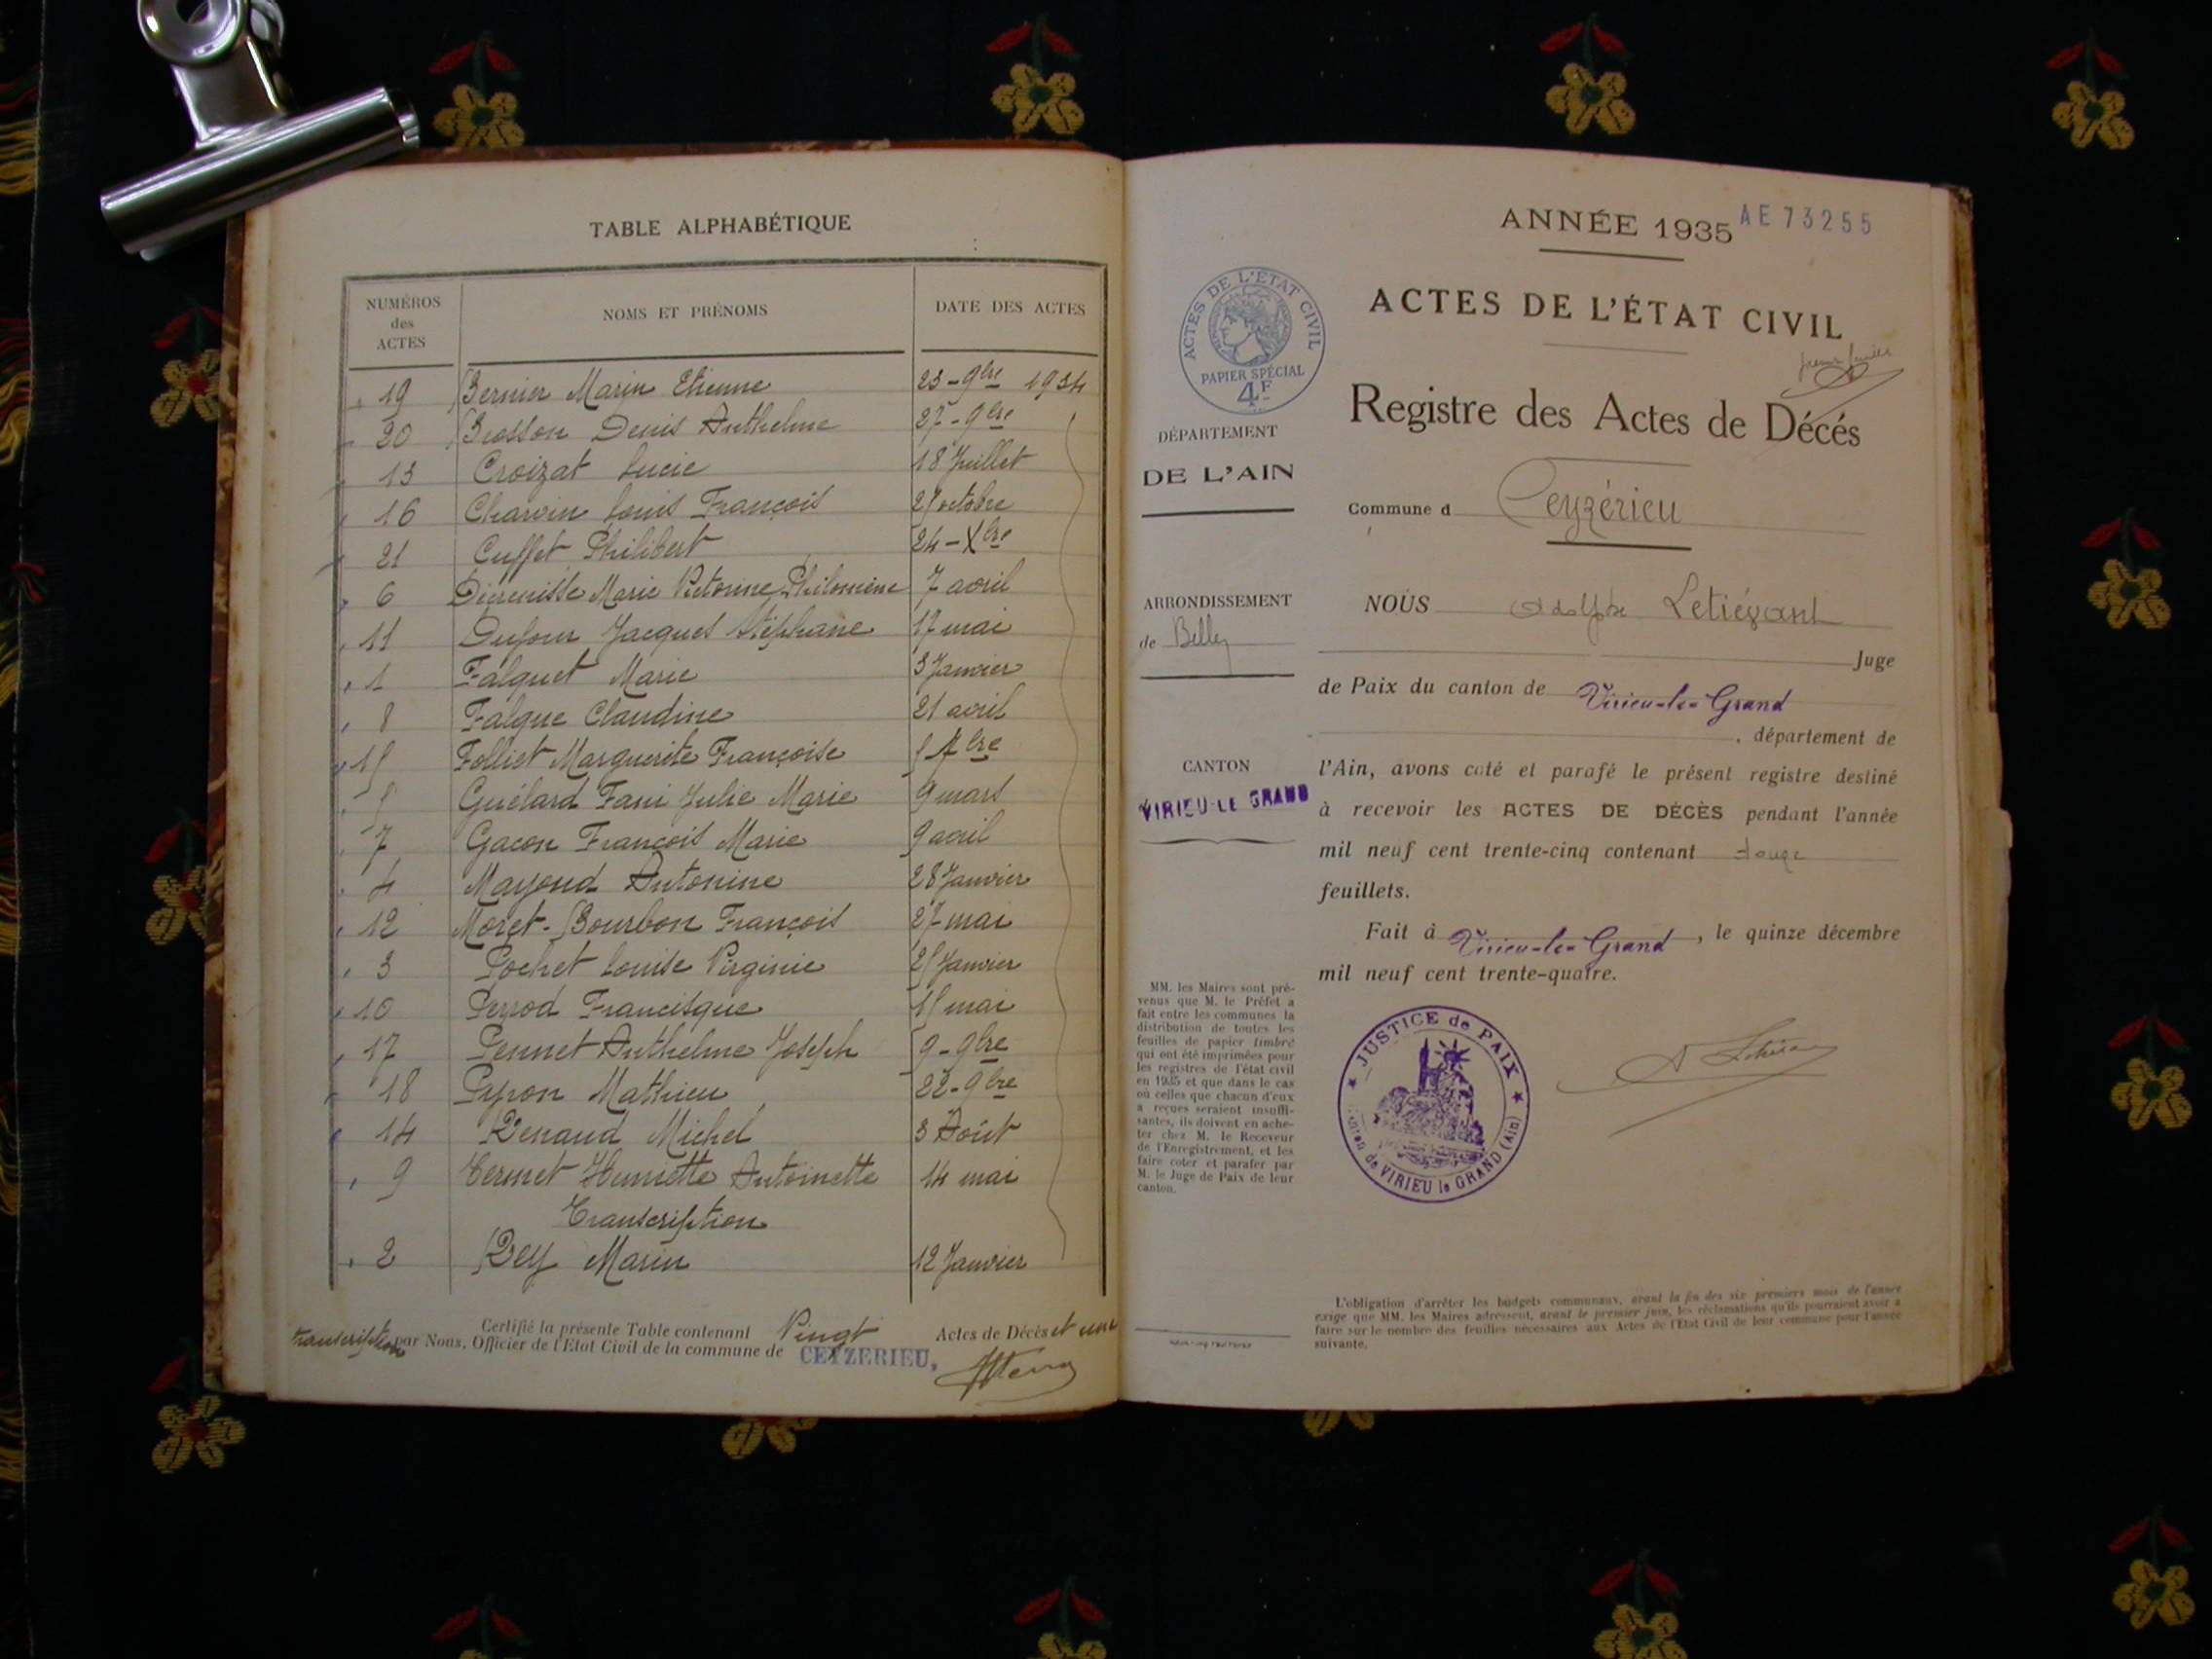 TABLE ALPHABÉTIQUE
NUMÉROS des ACTES
NOMS ET PRÉNOMS
DATE DES ACTES
19 Bernier Marin Etienne 23-9bre 1934
20 Brosson Denis Anthelme 27-9bre
13 Croizat Lucie 18 Juillet
16 Charvin Louis François 25 octobre
21 Cuffet Philibert 24-Xbre
6 Marie Victorine Philomène 7 avril
11 Dufour Jacques Stéphane 17 mai
1 Falquet Marie 3 Janvier
8 Falque Claudine 21 avril
15 Folliet Marguerite Françoise 5 7bre
5 Guélard Fani Julie Marie 9 mars
7 Gacon François Marie 9 avril
4 Mayoud Antonine 28 Janvier
12 Moret-Bourbon François 27 mai
3 Pochet Louise Virginie 25 Janvier
10 Perrod Francisque 15 mai
17 Pennet Anthelme Joseph 9-9bre
18 Pyron Mathieu 22-9bre
14 Renaud Michel 3 Août
9 Termet Henriette Antoinette 14 mai
Transcription
2 Rey Marin 12 Janvier
Certifié la présente Table contenant Vingt Actes de Décès et une
transcription par Nous, Officier de l'État Civil de la commune de CEYZERIEU,
ANNÉE 1935
AE 73255
ACTES DE L'ÉTAT CIVIL
PAPIER SPÉCIAL
4F
ACTES DE L'ÉTAT CIVIL
Registre des Actes de Décés
DÉPARTEMENT
DE L'AIN
Commune d Ceyzérieu
ARRONDISSEMENT
de Belley
NOUS Adolphe Letiévant
Juge
de Paix du canton de Virieu-le-Grand
, département de
CANTON
VIRIEU-LE GRAND
l'Ain, avons coté et parafé le présent registre destiné
à recevoir les ACTES DE DÉCÈS pendant l'année
mil neuf cent trente-cinq contenant douze
feuillets.
Fait à Virieu-le-Grand, le quinze décembre
mil neuf cent trente-quatre.
MM. les Maires sont pré-
venus que M. le Préfet a
fait entre les communes la
distribution de toutes les
feuilles de papier timbré
qui ont été imprimées pour
les registres de l'état civil
en 1935 et que dans le cas
où celles que chacun d'eux
a reçues seraient insuffi-
santes, ils doivent en ache-
ter chez M. le Receveur
de l'Enregistrement, et les
faire coter et parafer par
M. le Juge de Paix de leur
canton.
JUSTICE de PAIX
Canton de VIRIEU le GRAND (Ain)
L'obligation d'arrêter les budgets communaux, avant la fin des six premiers mois de l'année
exige que MM. les Maires adressent, avant le premier juin, les réclamations qu'ils pourraient avoir à
faire sur le nombre des feuilles nécessaires aux Actes de l'État Civil de leur commune pour l'année
suivante.